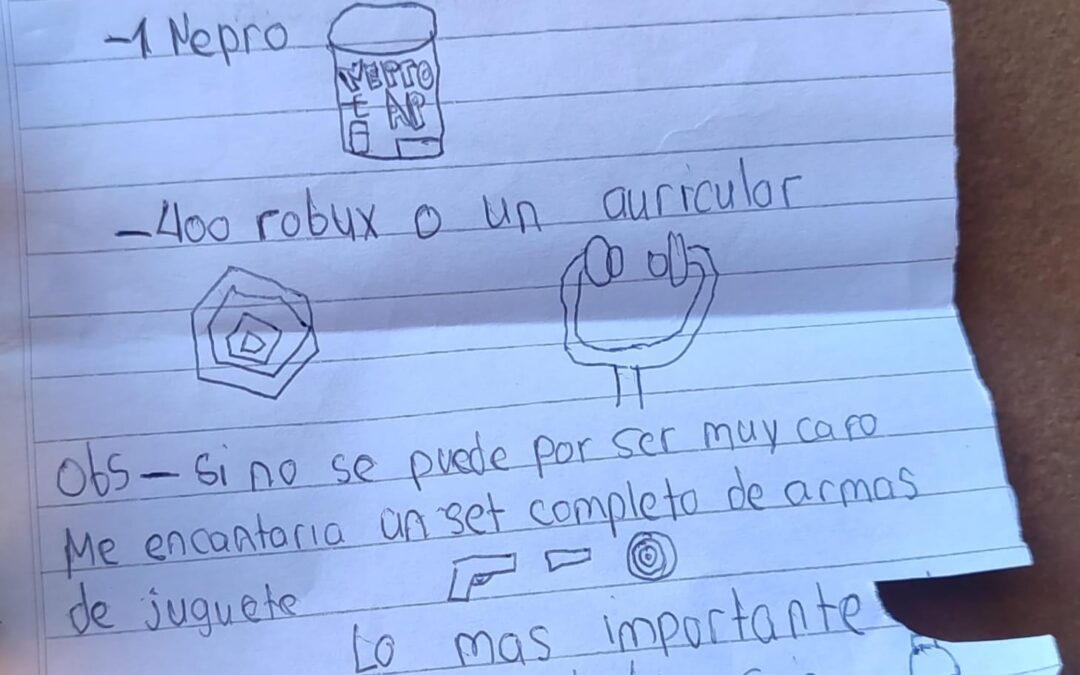 -1 Nepro
NEPRO
AP
-400 robux o un auricular
Obs - Si no se puede por ser muy caro
Me encantaria un set completo de armas
de juguete
Lo mas importante